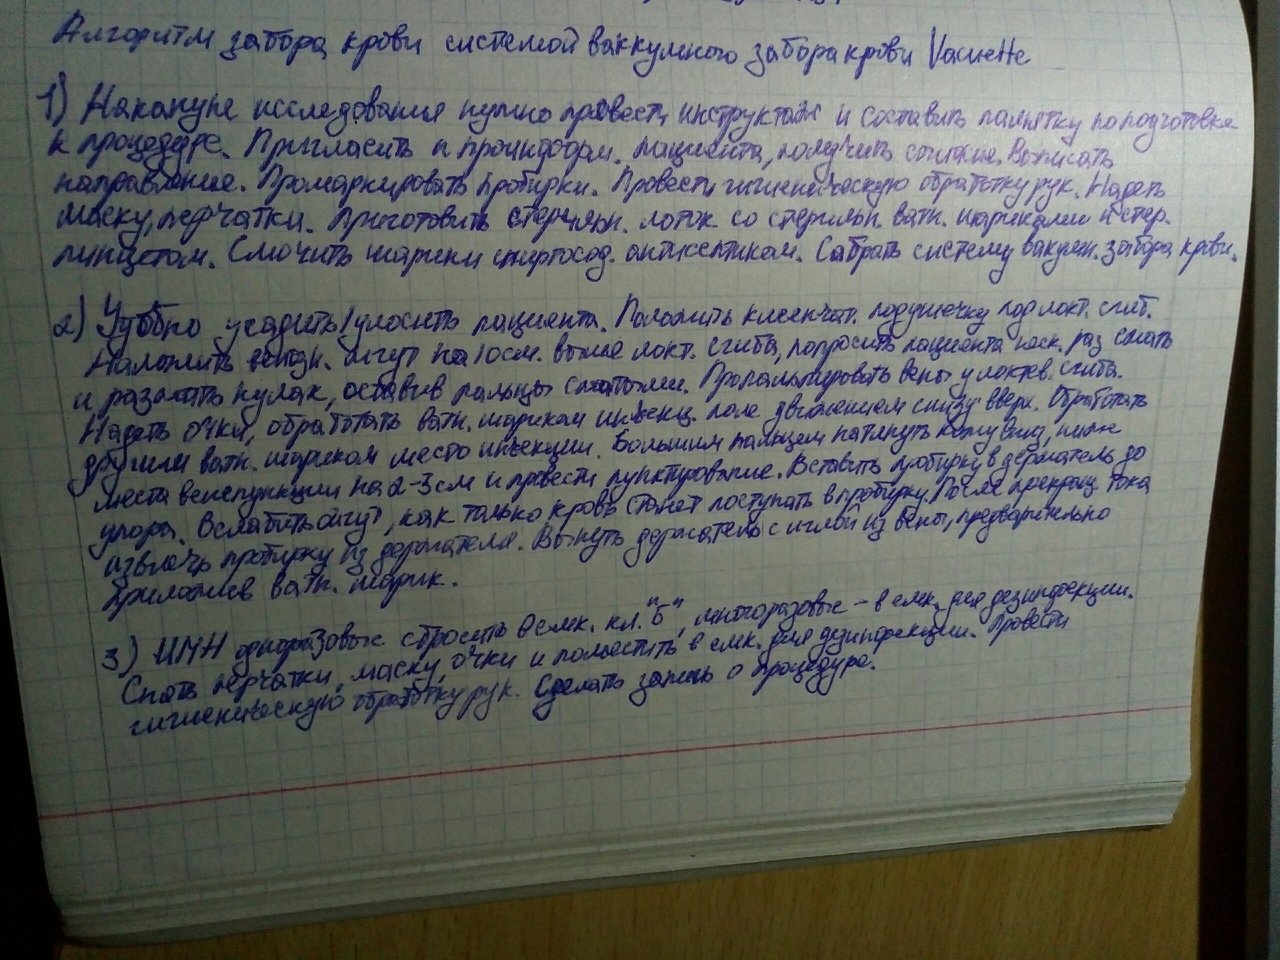 Алгоритм забора крови системой ваккумного забора крови Vacuette
1) Накануне исследования нужно провести инструктаж и составить памятку по подготовке
к процедуре. Пригласить и проинформ. пациента, получить согласие. Выписать
направление. Промаркировать пробирки. Провести гигиеническую обработку рук. Надеть
маску, перчатки. Приготовить стерильн. лоток со стерильн. ватн. шариками и стер.
пинцетом. Смочить шарики спиртосод. антисептиком. Собрать систему вакуумн. забора крови.
2) Удобно усадить/уложить пациента. Положить клеенчат. подушечку под локт. сгиб.
Наложить венозн. жгут на 10 см. выше локт. сгиба, попросить пациента неск. раз сжать
и разжать кулак, оставив пальцы сжатыми. Пропальпировать вены у локтев. сгиба.
Надеть очки, обработать ватн. шариком инъекц. поле движением снизу вверх. Обработать
другим ватн. шариком место инъекции. Большим пальцем натянуть кожу вниз, ниже
места венепункции на 2-3 см и провести пунктирование. Вставить пробирку в держатель до
упора. Ослабить жгут, как только кровь станет поступать в пробирку. После прекращ. тока
извлечь пробирку из держателя. Вынуть держатель с иглой из вены, предварительно
приложив ватн. шарик.
3) ИМН одноразовые сбросить в емк. кл. "Б", многоразовые - в емк. для дезинфекции.
Снять перчатки, маску, очки и поместить в емк. для дезинфекции. Провести
гигиеническую обработку рук. Сделать запись о процедуре.